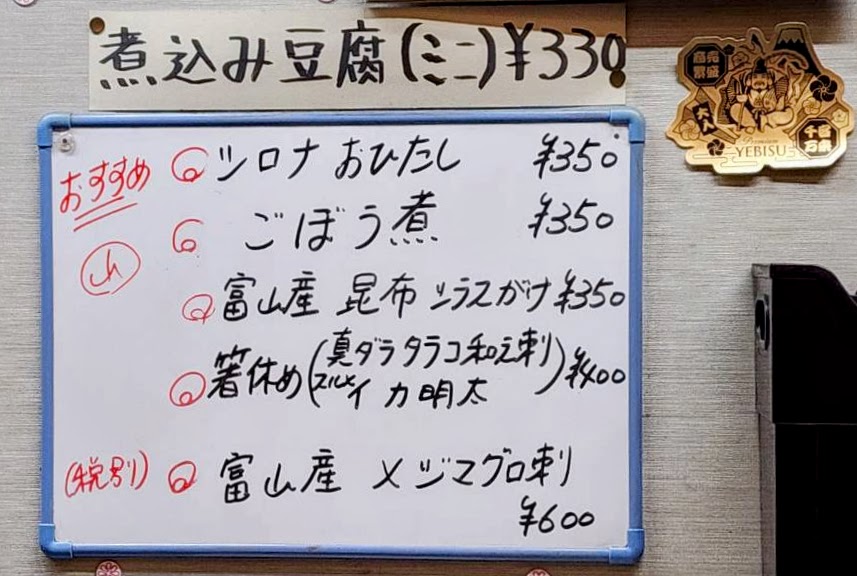 煮込み豆腐(ミニ)¥330
おすすめ
ツロナ おひたし ¥350
ごぼう煮 ¥350
富山産 昆布 シラスがけ ¥350
箸休め(真ダラタラコ和え刺 スルメイカ明太) ¥400
(税別)
富山産 メジマグロ刺
¥600
Premium
YEBISU